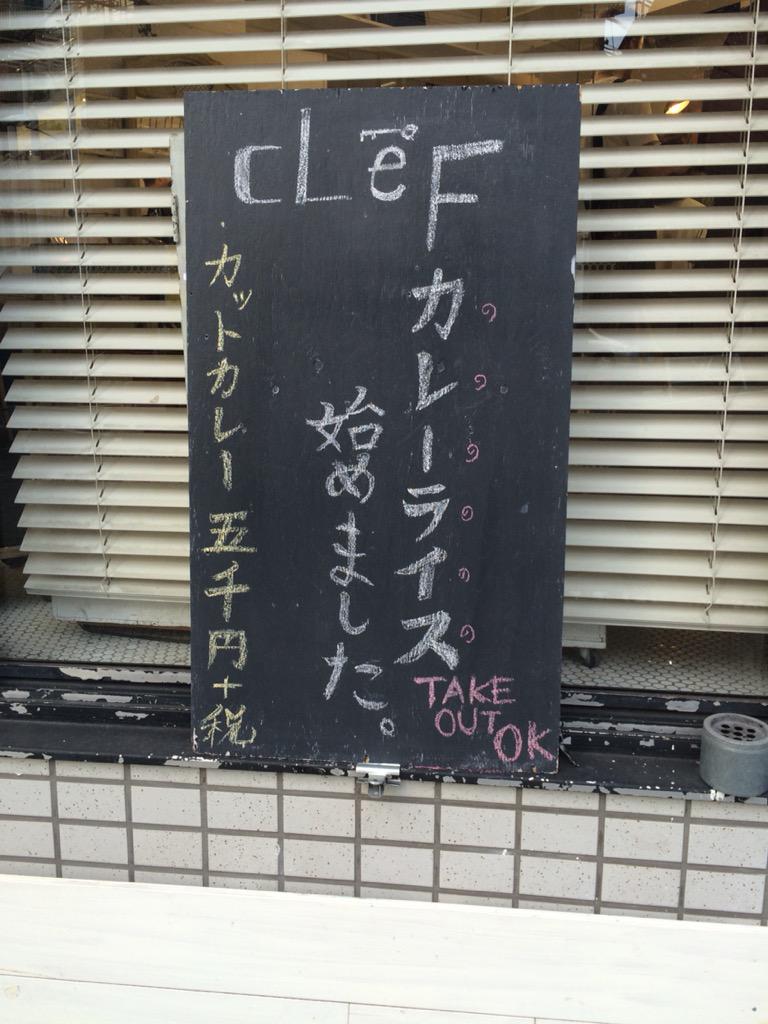 cLeF
カレーライス
始めました。
カットカレー 五千円+税
TAKE
OUT OK